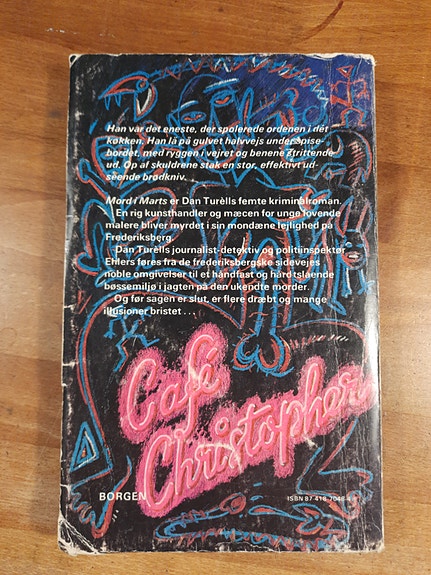 Han var det eneste, der spolerede ordenen i dét
køkken. Han lå på gulvet halvvejs under spise-
bordet, med ryggen i vejret og benene strittende
ud. Op af skuldrene stak en stor, effektivt ud-
seende brødkniv.
Mord i Marts er Dan Turèlls femte kriminalroman.
En rig kunsthandler og mæcen for unge lovende
malere bliver myrdet i sin mondæne lejlighed på
Frederiksberg.
Dan Turèlls journalist-detektiv og politiinspektør
Ehlers føres fra de frederiksbergske sidevejes
noble omgivelser til et håndfast og hårdtslående
bøssemiljø i jagten på den ukendte morder.
Og før sagen er slut, er flere dræbt og mange
illusioner bristet . . .
Café
Christophers
BORGEN
ISBN 87-418-7048-4